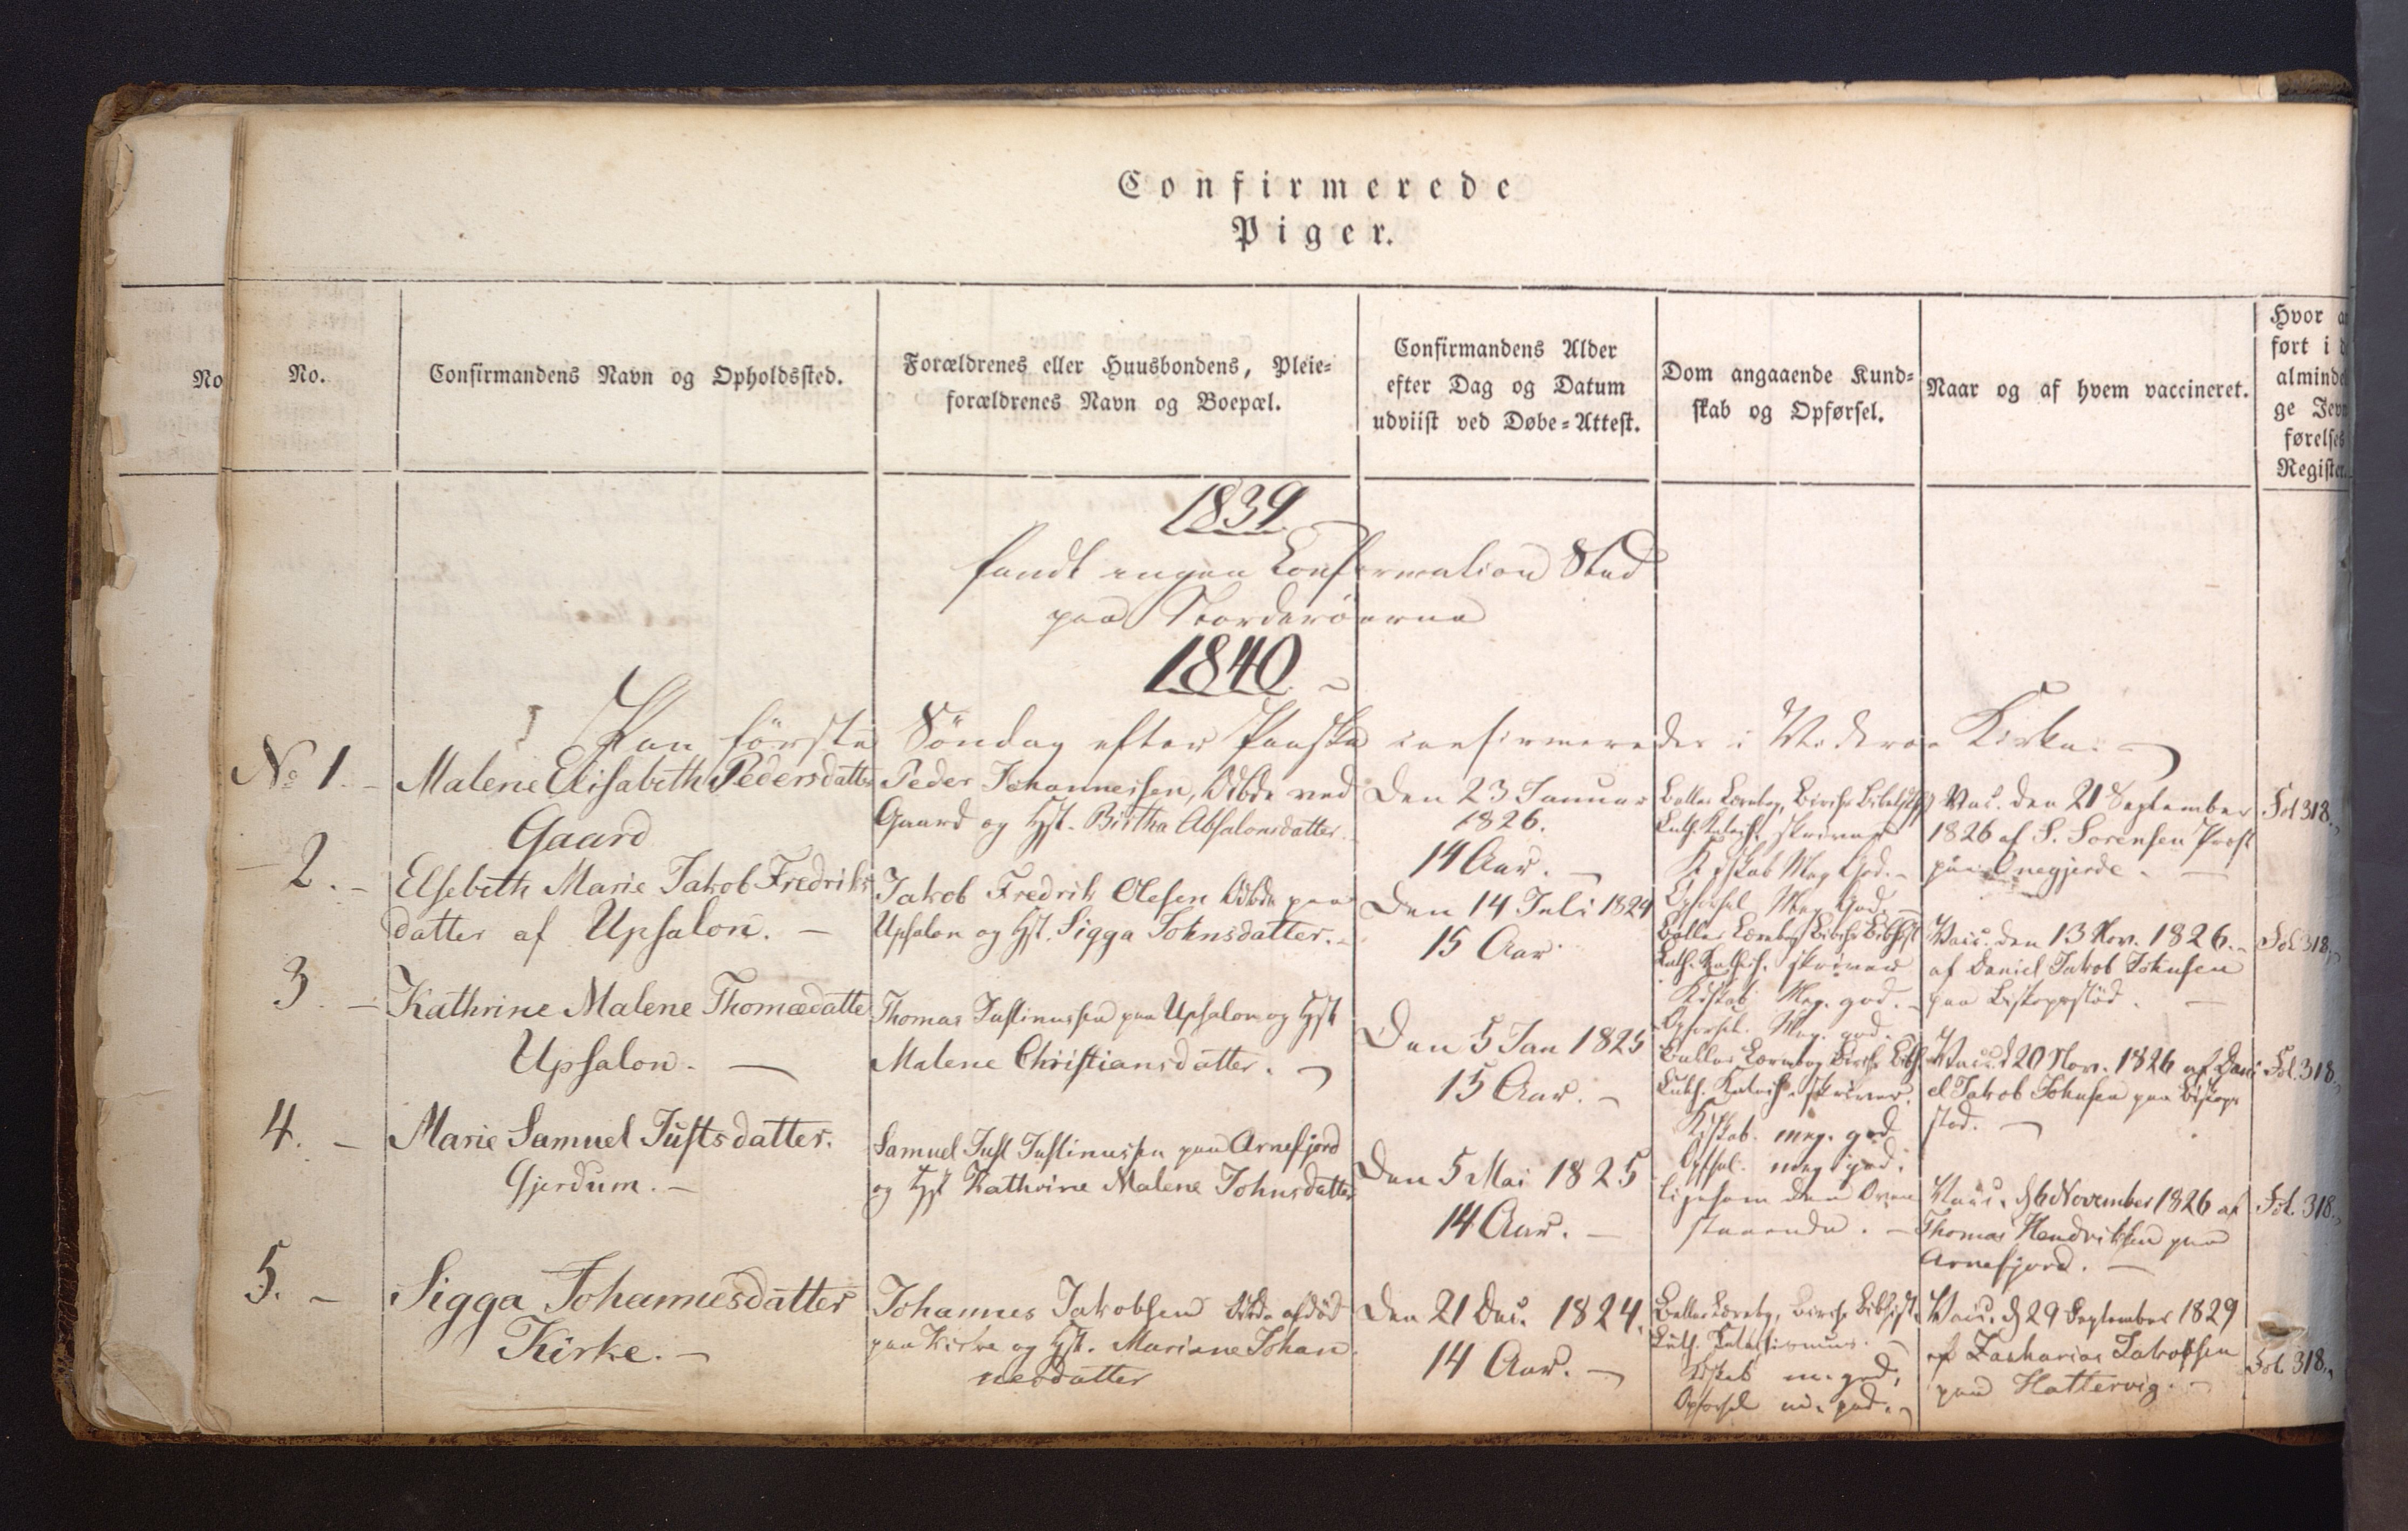 Confirmerede
Piger.
No
No.
Confirmandens Navn og Opholdssted.
Forældrenes eller Huusbondens, Pleie=
forældrenes Navn og Boepæl.
Confirmandens Alder
efter Dag og Datum
udviist ved Døbe=Attest.
Dom angaaende Kund=
skab og Opførsel.
Naar og af hvem vaccineret.
Hvor
ført i
almind
ge
førelses
Register
1839
fandt ingen Confirmation Sted
paa Norderöerne
1840
første Söndag efter Paaske confirmeredes i Kirke.
No 1. Malene Elisabeth Pedersdatter
Gaard
Peder Johannessen, ved
Gaard og Hst. Birtha Absalonsdatter.
Den 23 Januar
1826.
14 Aar.
Balles Lærebog,
skriver
Kdskab Meg God.
Opførsel Meg God.
Vac. den 21 September
1826 af S. Sørensen
paa Qnegjerde.
Fol 318.
2. Elsebeth Marie Jakob Fredriks
datter af Upsalon.
Jakob Fredrik Olesen paa
Upsalon og Hst. Sigga Johnsdatter.
Den 14 Juli 1824
15 Aar
Balles Lærebog
skriver
Kdskab Meg. god.
Opførsel. Meg. god.
Vacc. den 13 Nov. 1826.
af Daniel Jakob Johnsen
paa Biskopsstød.
Fol 318.
3. Kathrine Malene Thomædatter
Upsalon.
Thomas Justinussen paa Upsalon og Hst.
Malene Christiansdatter.
Den 5 Jan 1825
15 Aar.
Balles Lærebog
Luth. skriver.
Kdskab. meg. god
meg god.
Vacc. d 20 Nov. 1826 af Dani
el Jakob Johnsen paa Biskops
stød.
Fol. 318.
4. Marie Samuel Justsdatter.
Gjerdum.
Samuel Just Justinussen paa Arnefjord
og Hst Kathrine Malene Johnsdatter
Den 5 Mai 1825
14 Aar.
ligesom den Oven
staaende.
Vacc. d 6 November 1826 af
Thomas Hendriksen paa
Arnefjord.
Fol. 318.
5. Sigga Johannesdatter
Kirke.
Johannes Jakobsen afdød
paa Kirke og Hst. Mariane Johan
nesdatter
Den 21 Dec. 1824.
14 Aar.
Balles Lærebog,
Luth. Katechismus.
Kdskab m. god,
Opførsel m. god.
Vacc. d 29 September 1829
af Zacharias Jakobsen
paa Hattervig.
Fol. 318.